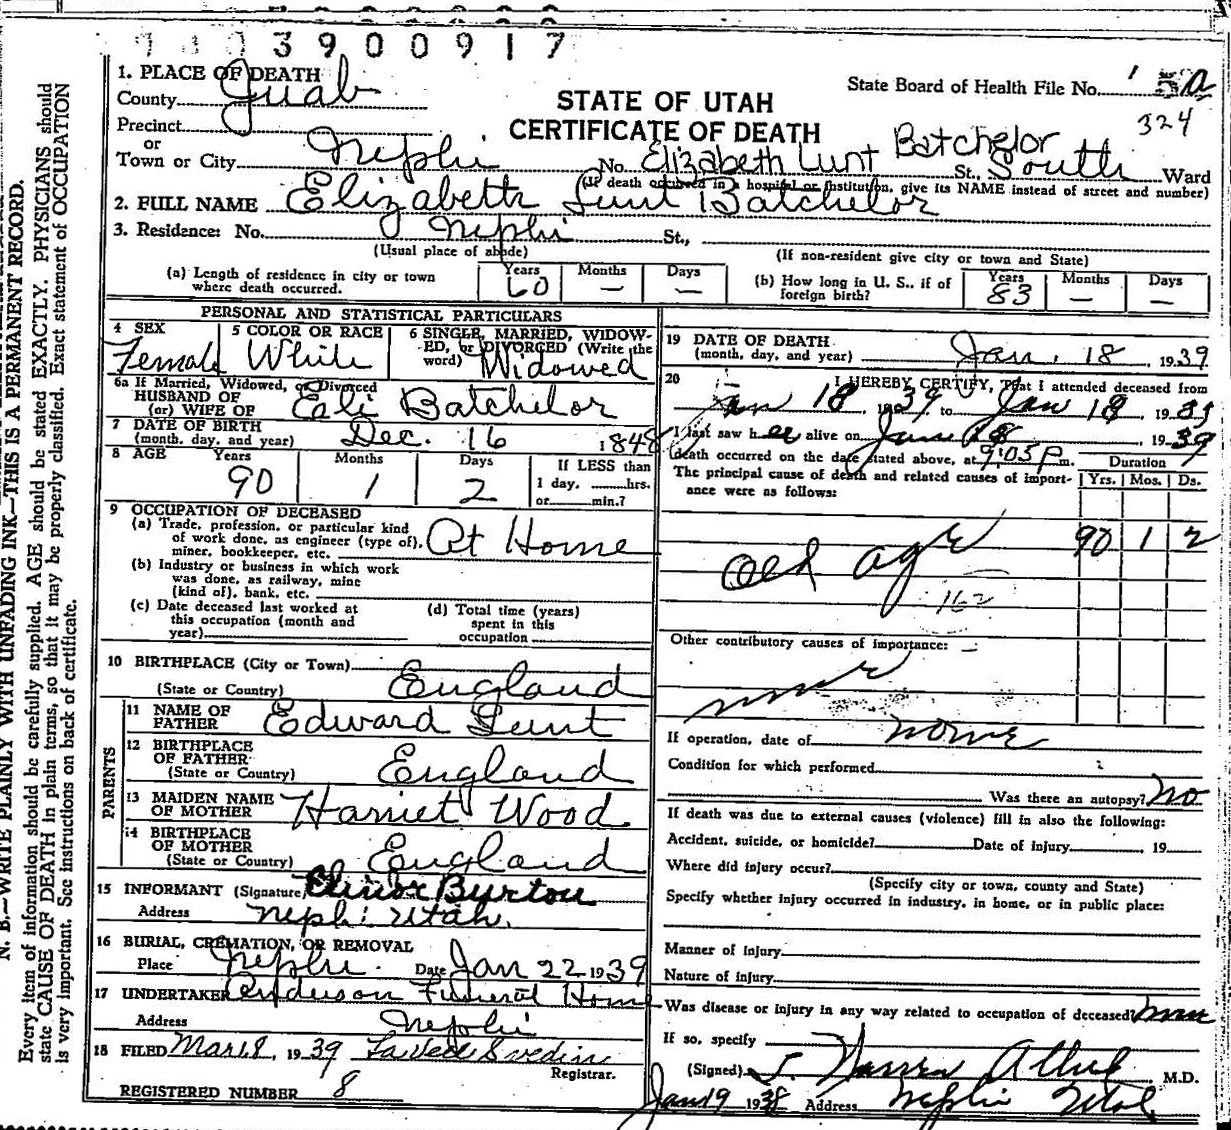 3900917
1. PLACE OF DEATH
County Juab
State Board of Health File No. 5a
324
STATE OF UTAH
CERTIFICATE OF DEATH
Precinct
or
Town or City Nephi No. Elizabeth Lunt Batchelor St., South Ward
(If death occurred in a hospital or institution, give its NAME instead of street and number)
2. FULL NAME Elizabeth Lunt Batchelor
3. Residence: No. Nephi St.,
(Usual place of abode)
(If non-resident give city or town and State)
(a) Length of residence in city or town where death occurred. Years 60 Months — Days —
(b) How long in U. S., if of foreign birth? Years 83 Months — Days —
PERSONAL AND STATISTICAL PARTICULARS
4 SEX Female
5 COLOR OR RACE White
6 SINGLE, MARRIED, WIDOWED, or DIVORCED (Write the word) Widowed
6a If Married, Widowed, or Divorced
HUSBAND OF
(or) WIFE OF Eli Batchelor
7 DATE OF BIRTH
(month, day, and year) Dec. 16 1848
8 AGE Years 90 Months 1 Days 2
If LESS than
1 day, hrs.
or min.?
9 OCCUPATION OF DECEASED
(a) Trade, profession, or particular kind of work done, as engineer (type of), miner, bookkeeper, etc. At Home
(b) Industry or business in which work was done, as railway, mine (kind of), bank, etc.
(c) Date deceased last worked at this occupation (month and year)
(d) Total time (years) spent in this occupation
10 BIRTHPLACE (City or Town)
(State or Country) England
PARENTS
11 NAME OF FATHER Edward Lunt
12 BIRTHPLACE OF FATHER
(State or Country) England
13 MAIDEN NAME OF MOTHER Harriet Wood
14 BIRTHPLACE OF MOTHER
(State or Country) England
15 INFORMANT (Signature) Elinor Burton
Address Nephi Utah.
16 BURIAL, CREMATION, OR REMOVAL
Place Nephi. Date Jan 22 1939
17 UNDERTAKER Anderson Funeral Home
Address Nephi
18 FILED Mar 18, 1939
Registrar.
REGISTERED NUMBER 8
19 DATE OF DEATH
(month, day, and year) Jan. 18 1939
20 I HEREBY CERTIFY, That I attended deceased from
Jan 18 1939 to Jan 18 19
I last saw her alive on Jan 18 1939
death occurred on the date stated above, at 9:05 P m.
The principal cause of death and related causes of importance were as follows:
Duration
Yrs. Mos. Ds.
old age 90 1 2
162
Other contributory causes of importance:
none
If operation, date of none
Condition for which performed
Was there an autopsy? No
If death was due to external causes (violence) fill in also the following:
Accident, suicide, or homicide? Date of injury 19
Where did injury occur?
(Specify city or town, county and State)
Specify whether injury occurred in industry, in home, or in public place:
Manner of injury
Nature of injury
Was disease or injury in any way related to occupation of deceased?
If so, specify
(Signed) M.D.
Jan 19 1938 Address Nephi Utah
N. B.—WRITE PLAINLY WITH UNFADING INK—THIS IS A PERMANENT RECORD.
Every item of information should be carefully supplied. AGE should be stated EXACTLY. PHYSICIANS should
state CAUSE OF DEATH in plain terms, so that it may be properly classified. Exact statement of OCCUPATION
is very important. See instructions on back of certificate.